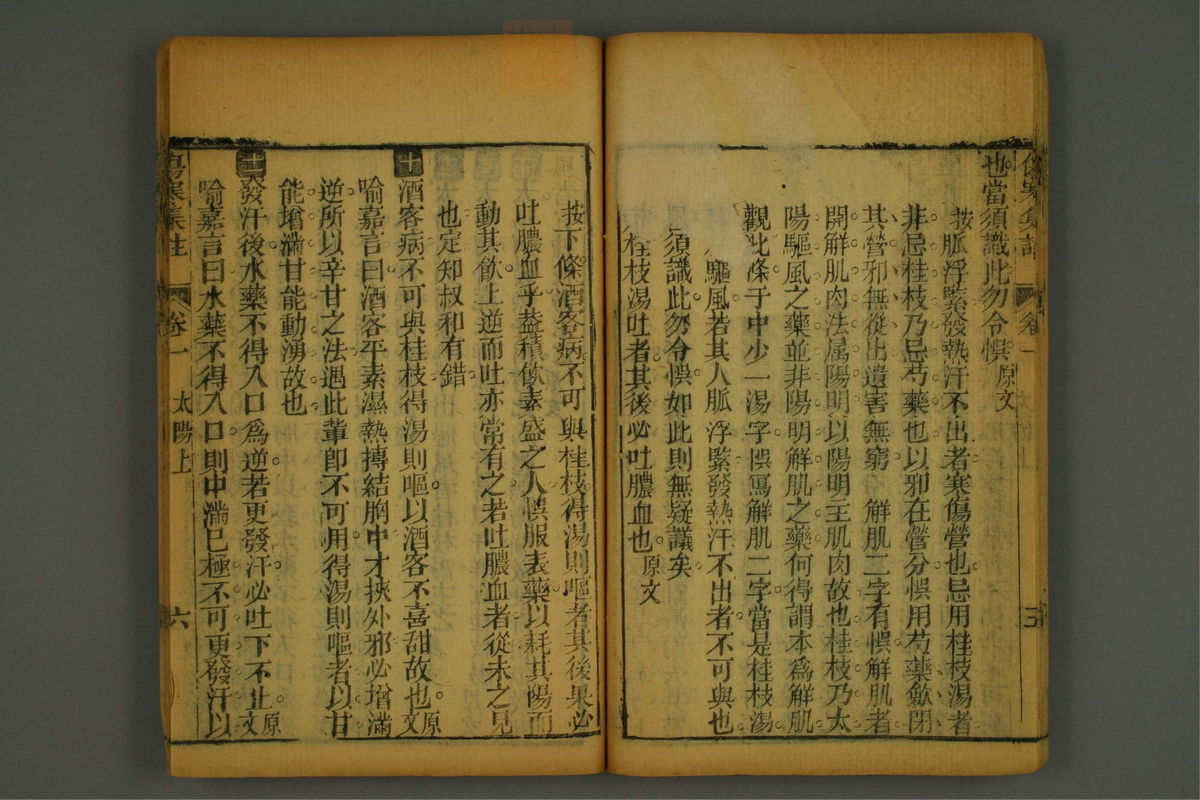 傷寒集註 卷一 五
也當須識此勿令悞原文
按脈浮緊發熱汗不出者寒傷營也忌用桂枝湯者
非忌桂枝乃忌芍藥也以邪在營分悞用芍藥歛閉
其營邪無從出遺害無窮 解肌二字有悞解肌者
開解肌肉法属陽明以陽明主肌肉故也桂枝乃太
陽驅風之藥並非陽明解肌之藥何得謂本為解肌
觀此條于中少一湯字悞寫解肌二字當是桂枝湯
驅風若其人脈浮緊發熱汗不出者不可與也
須識此勿令悞如此則無疑議矣
桂枝湯吐者其後必吐膿血也原文
按下條酒客病不可與桂枝得湯則嘔者其後果必
吐膿血乎葢積飲素盛之人悞服表藥以耗其陽而
動其飲上逆而吐亦常有之若吐膿血者從未之見
也定知叔和有錯
十 酒客病不可與桂枝得湯則嘔以酒客不喜甜故也原文
喻嘉言曰酒客平素濕熱摶結胸中才挾外邪必增滿
逆所以辛甘之法遇此輩卽不可用得湯則嘔者以甘
能增滿甘能動湧故也
十一 發汗後水藥不得入口為逆若更發汗必吐下不止原文
喻嘉言曰水藥不得入口則中滿已極不可更發汗以
傷寒集註 卷一 太陽上 六